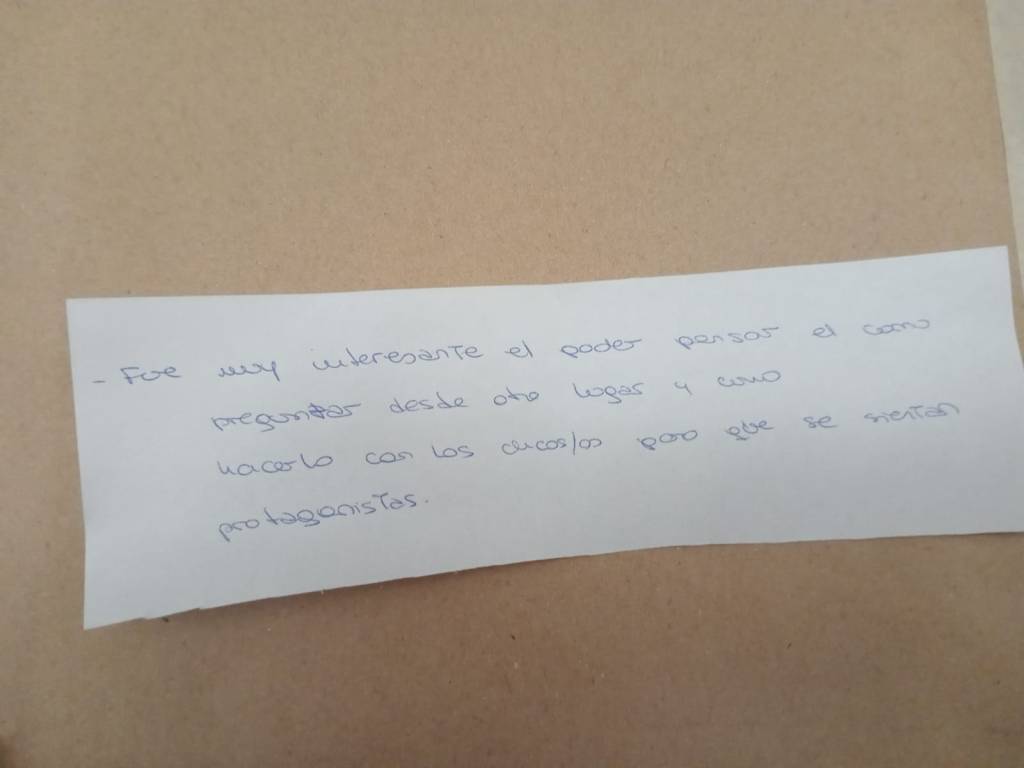 - Fue muy interesante el poder pensar el como
preguntar desde otro lugar y como
hacerlo con los chicos/as para que se sientan
protagonistas.